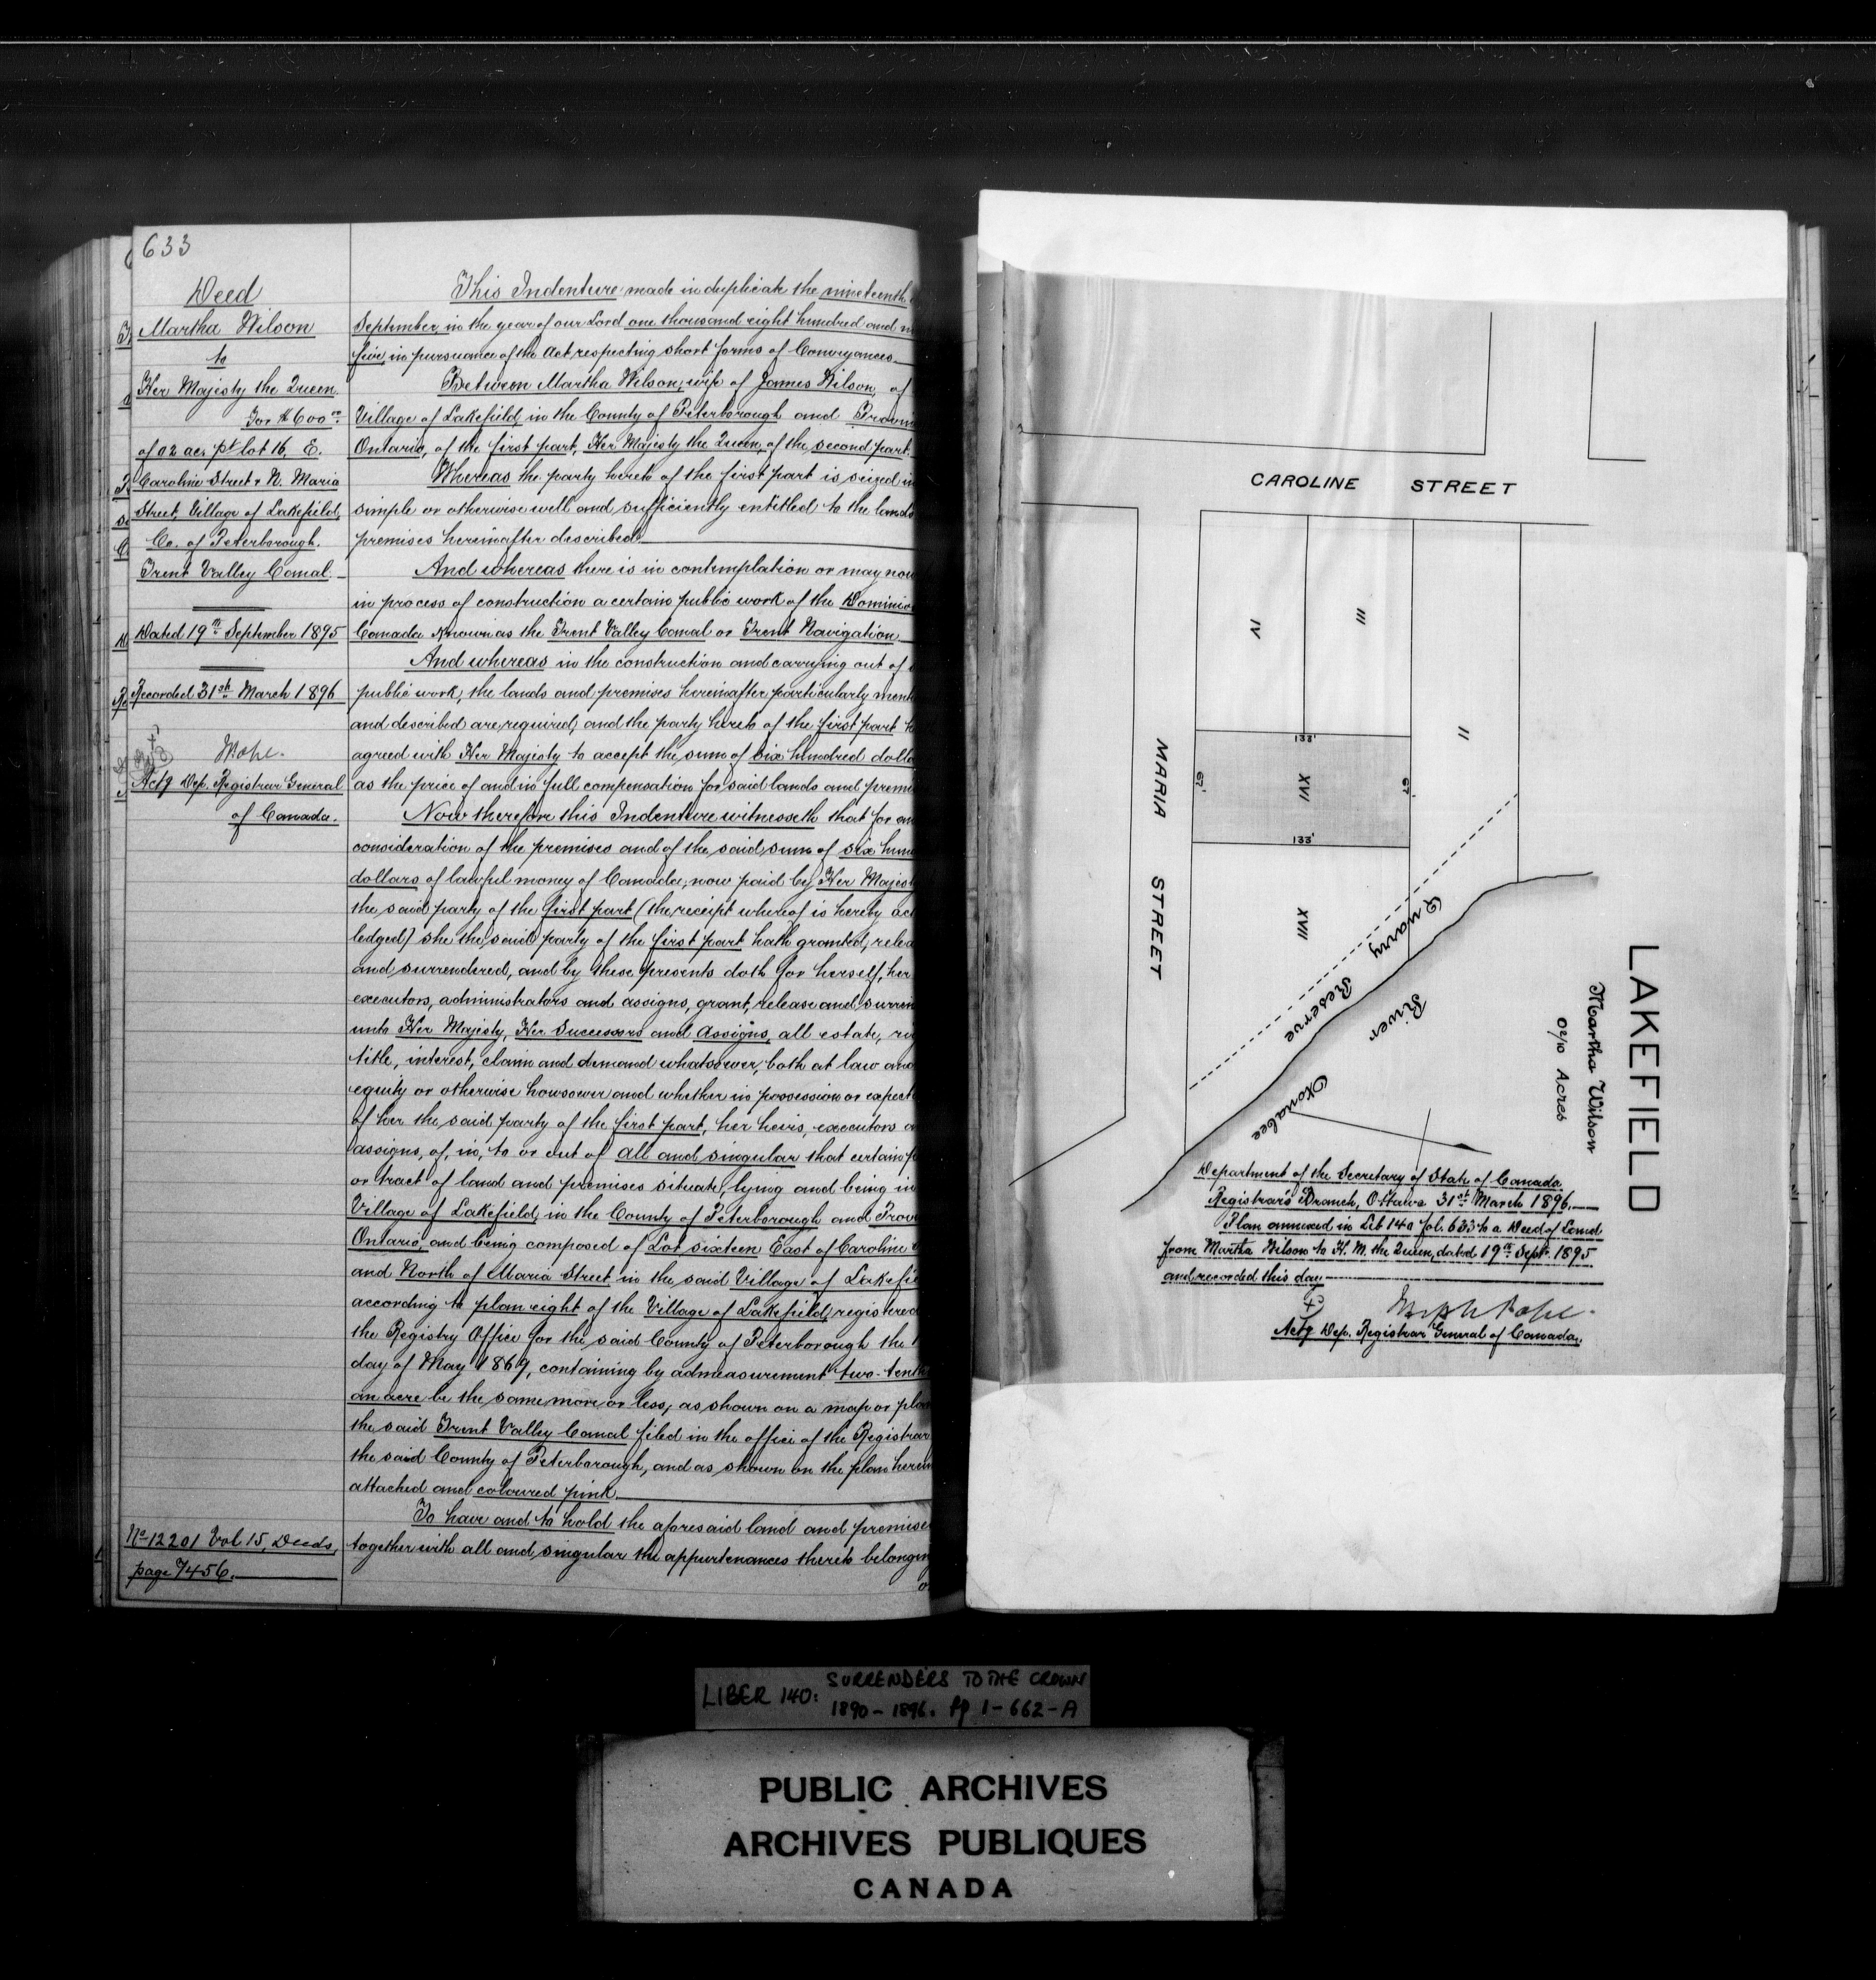 633
Deed
Martha Wilson
to
Her Majesty the Queen.
For $600 00.
of 02 ac. pt lot 16, E.
Caroline Street & N. Maria
Street, Village of Lakefield,
Co. of Peterborough.
Trent Valley Canal.
Dated 19th September 1895
Recorded 31st March 1896
Actg Dep. Registrar General
of Canada.
No 12201 Vol 15, Deeds,
page 7456.
This Indenture made in duplicate the nineteenth
September, in the year of our Lord one thousand eight hundred and
five, in pursuance of the Act respecting short forms of Conveyances.
Between Martha Wilson, wife of James Wilson, of
Village of Lakefield, in the County of Peterborough and Provin
Ontario, of the first part, Her Majesty the Queen, of the second part.
Whereas the party hereto of the first part is seized in
simple or otherwise well and sufficiently entitled to the lands
premises hereinafter described.
And whereas there is in contemplation or may now
in process of construction a certain public work of the Dominion
Canada known as the Trent Valley Canal or Trent Navigation
And whereas in the construction and carrying out of
public work, the lands and premises hereinafter particularly ment
and described are required, and the party hereto of the first part h
agreed with Her Majesty to accept the sum of six hundred dolla
as the price of and in full compensation for said lands and premi
Now therefore this Indenture witnesseth that for an
consideration of the premises and of the said sum of six hun
dollars of lawful money of Canada, now paid by Her Majest
the said party of the first part (the receipt whereof is hereby ack
ledged) she the said party of the first part hath granted, relea
and surrendered, and by these presents doth for herself, her
executors, administrators and assigns, grant, release and surren
unto Her Majesty, Her Successors and Assigns, all estate, rig
title, interest, claim and demand whatsoever, both at law and
equity or otherwise howsoever and whether in possession or expect
of her the said party of the first part, her heirs, executors a
assigns, of, in, to or out of all and singular that certain p
or tract of land and premises situate, lying and being in
Village of Lakefield, in the County of Peterborough and Prov
Ontario, and being composed of Lot sixteen East of Caroline
and North of Maria Street in the said Village of Lakefie
according to plan eight of the Village of Lakefield, registered
the Registry Office for the said County of Peterborough the 1
day of May 1869, containing by admeasurement two-tenth
an acre be the same more or less, as shown on a map or plan
the said Trent Valley Canal filed in the office of the Registrar
the said County of Peterborough, and as shown on the plan hereun
attached and coloured pink.
To have and to hold the aforesaid land and premise
together with all and singular the appurtenances thereto belongin
o
CAROLINE STREET
IV
III
II
133'
67'
XVI
67'
133'
XVII
MARIA STREET
Quarry Reserve
River Otonabee
LAKEFIELD
Martha Wilson
02/10 Acres
Department of the Secretary of State of Canada.
Registrar's Branch, Ottawa 31st March 1896.
Plan annexed in Lib 140 fol. 633 to a Deed of Land
from Martha Wilson to H. M. the Queen, dated 19th Sept. 1895
and recorded this day
Joseph Pope.
Actg Dep. Registrar General of Canada.
LIBER 140: SURRENDERS TO THE CROWN
1890-1896. Pp 1-662-A
PUBLIC ARCHIVES
ARCHIVES PUBLIQUES
CANADA